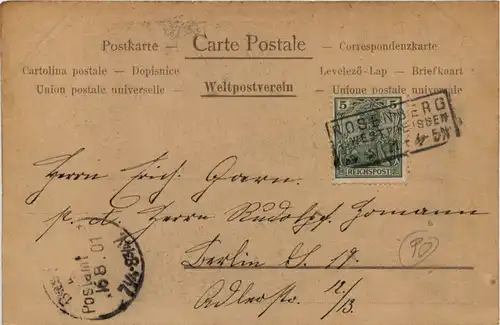 Postkarte — Carte Postale — Correspondenzkarte
Cartolina postale — Dopisnice Levelező-Lap — Briefkaart
Union postale universelle — Weltpostverein — Unione postale universale
5 5
ROSENBERG
REICHSPOST
Herrn Erich Garn.
p. A. Herrn Rudolf Homann
Berlin
Adlerstr. 12/13.
PO
Postamt
16.8.01
7¼-8